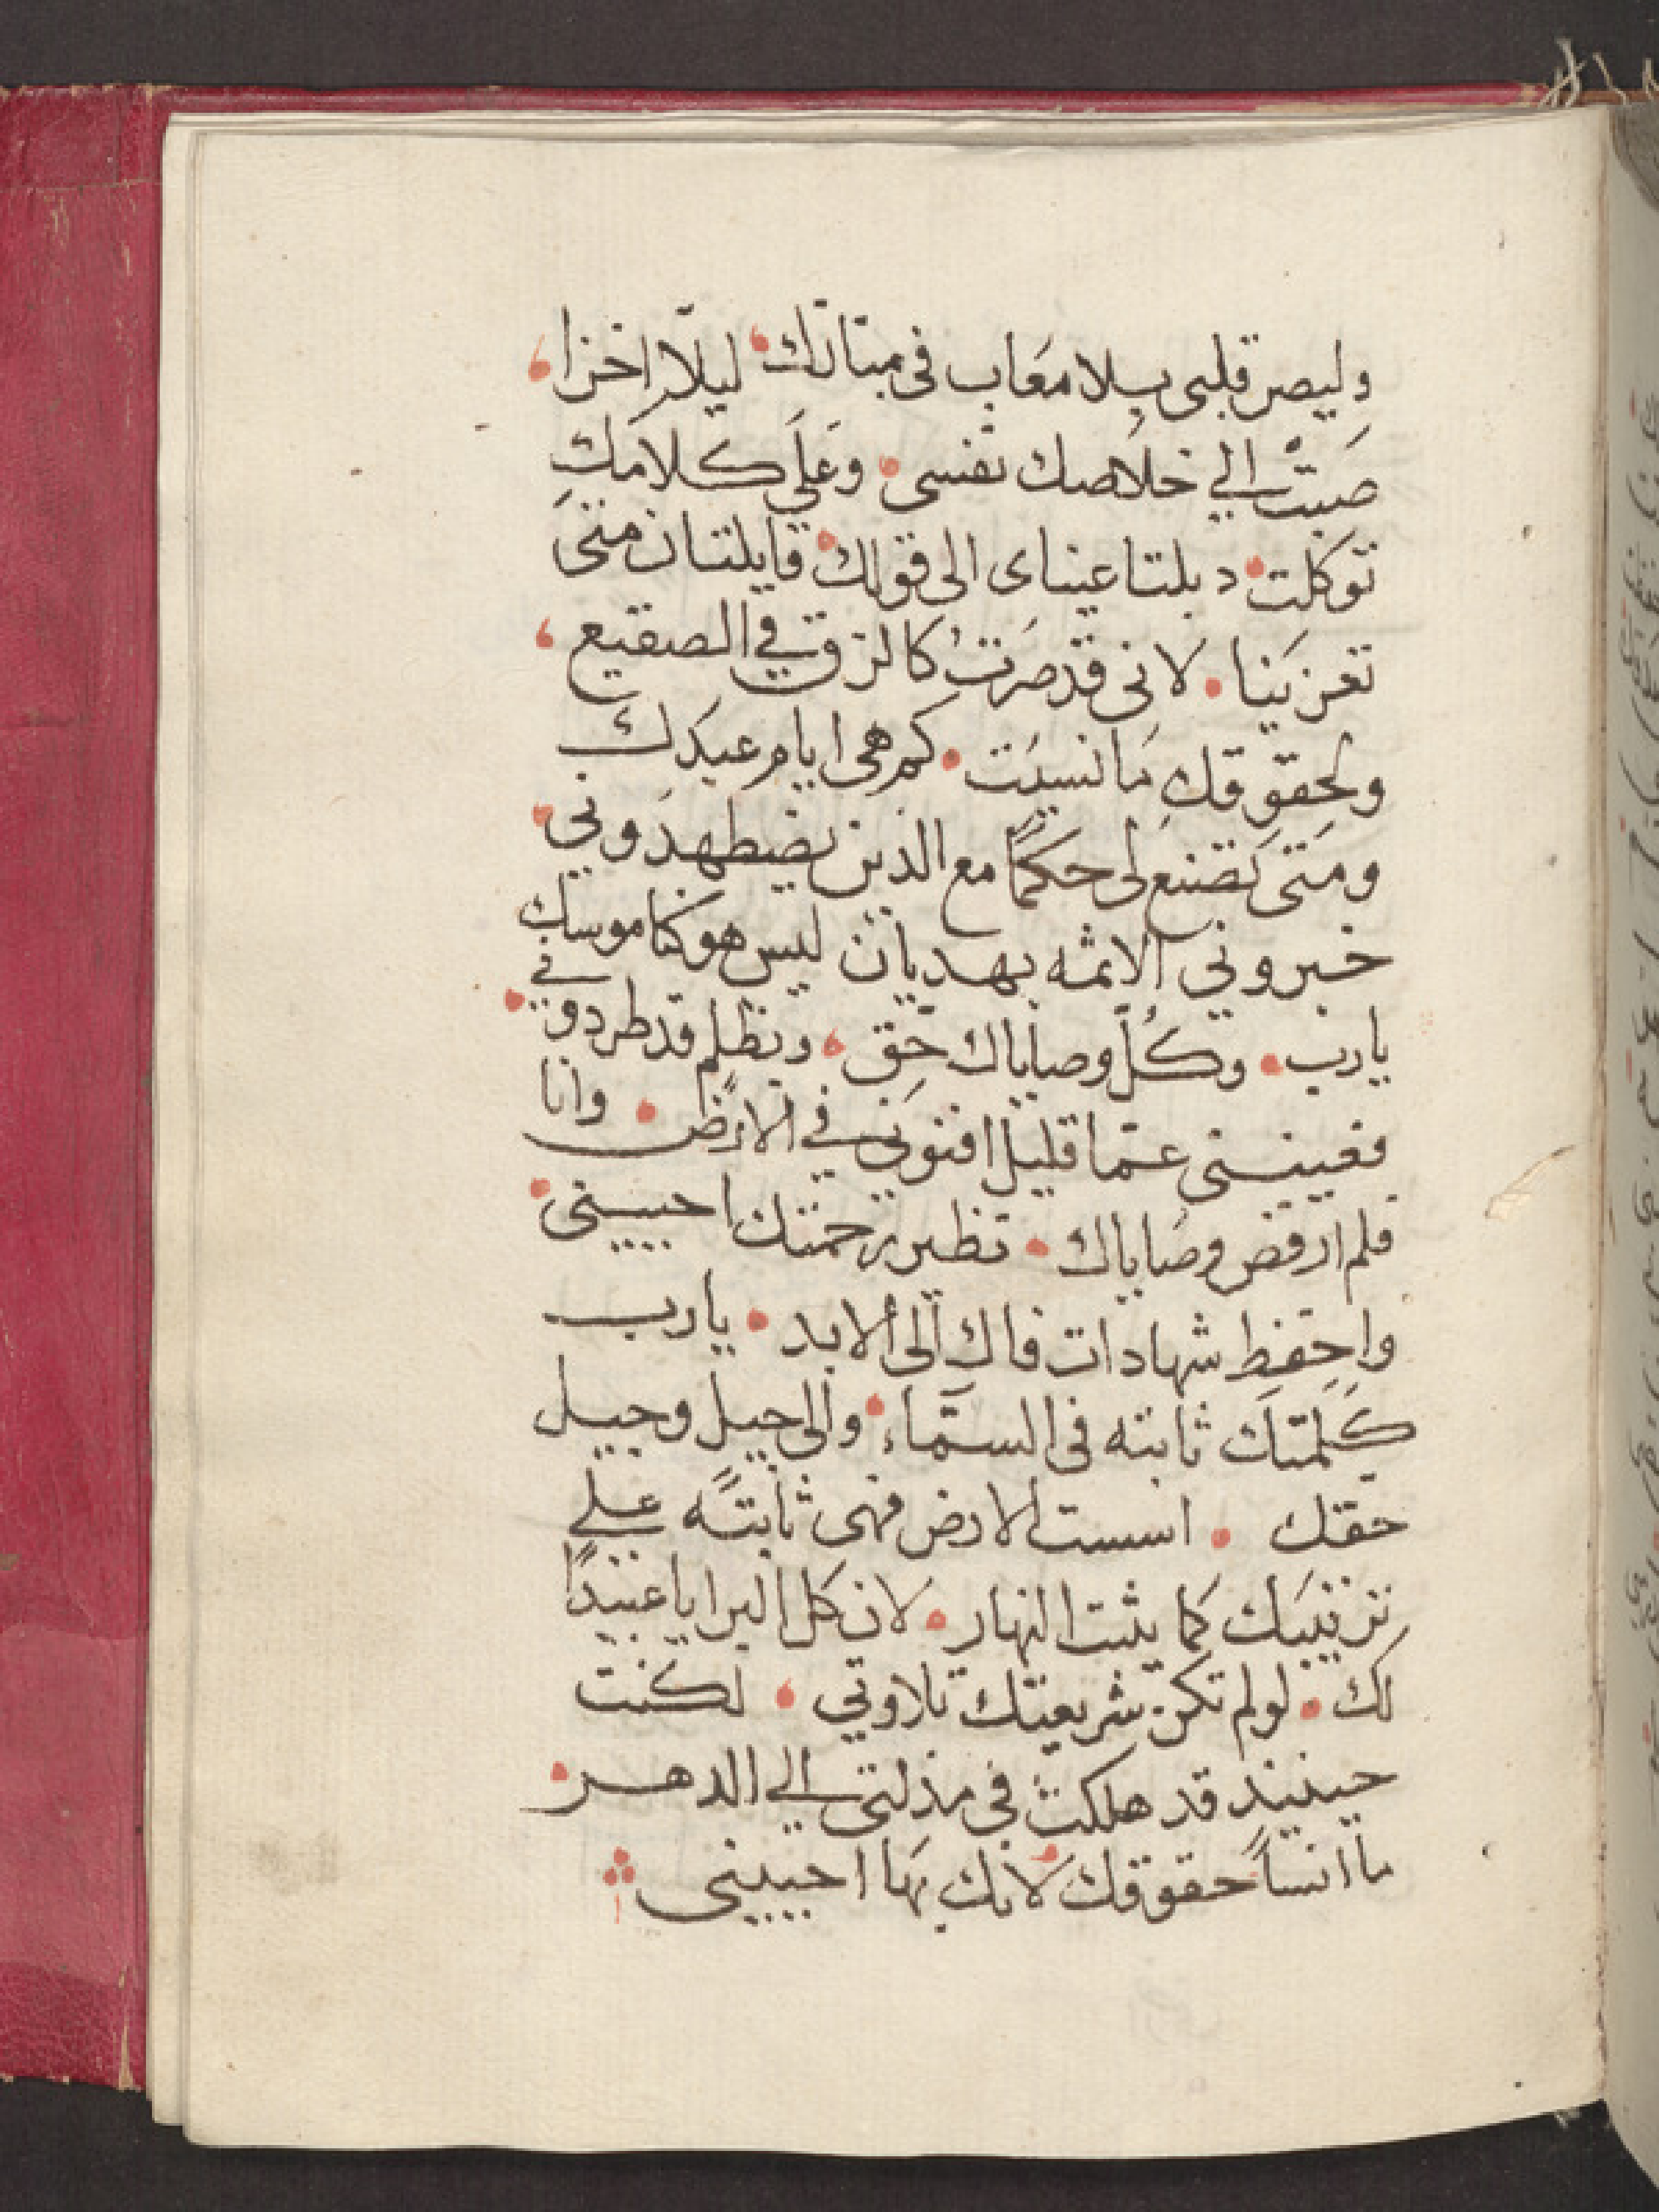 وليصر قلبى بلا معَاب فى مبتاتك ليلّا اخزا
صَبتْ الي خلاصك نفسى وعَلَى كلامَكِ
توكلت دبلتا عيناى الى قولك قايلتان متىَ
تعزيَنا لانى قد صَرتُ كالزق في الصقيع
ولحقوقكِ مَا نسيَت كم هى ايام عبَدك
ومَتىَ تَصنع لى حكمًا مع الذين يضطهدَوني
خبروني الاثمه بهديان ليس هو كناموسك
يارب وكُلّ وصاياك حَق وبظلم قد طردوني
فعيننى عمّا قليل افنوَني في الارض وانا
فلم ارفض وصَاياك نظير رحمتك احيينى
واحفظ شهادات فاك الى الابد يارب
كَلمَتكَ ثابته فى السمَّاء والى جيل وجيل
حقك اسست الارض فهى ثابتًه علي
ترتيبَك كما يثبت النهار لان كل البرايا عبيدًا
لك لولم تكن شريعتك تلاوتي لكنت
حينيند قد هلكتُ فى مذلتى الي الدهر
ما انسَاً حقوقك لانك بهَا احييتنى